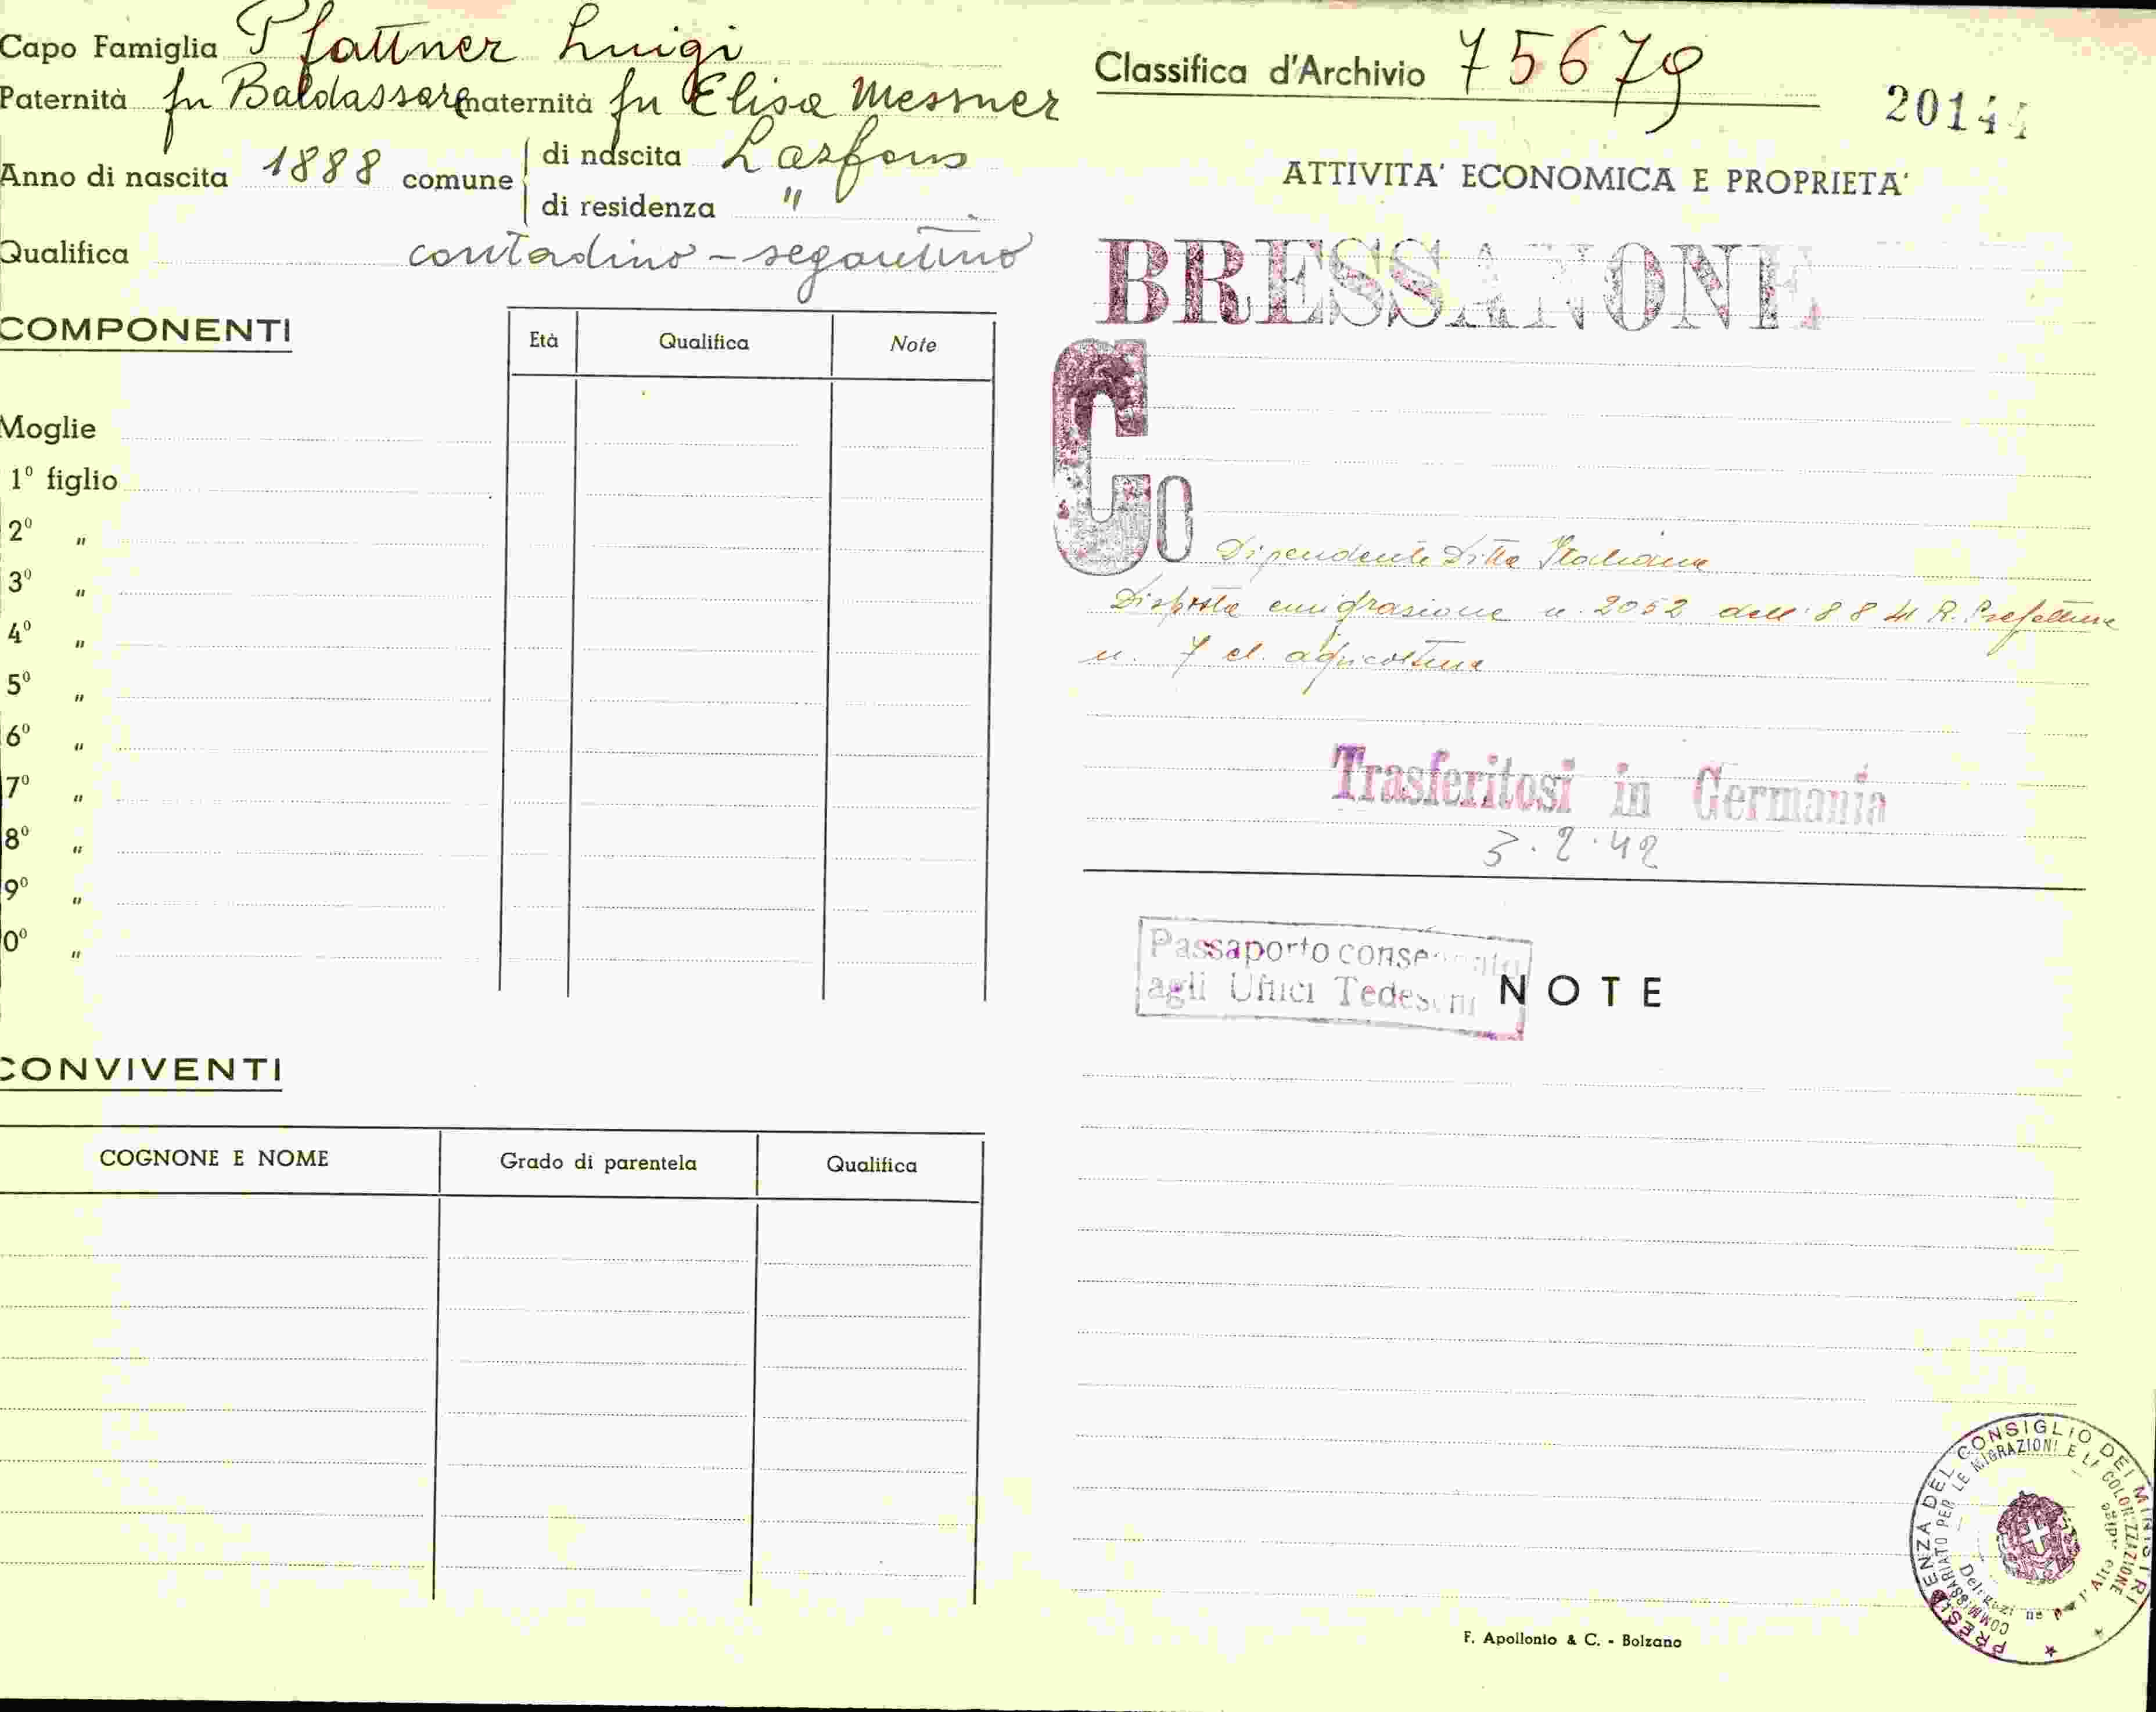 Capo Famiglia Pfattner Luigi
Paternità fu Baldassare maternità fu Elisa Messner
Anno di nascita 1888 comune di nascita Lasfons
di residenza "
Qualifica contadino - segantino
COMPONENTI
Età Qualifica Note
Moglie
1º figlio
2º "
3º "
4º "
5º "
6º "
7º "
8º "
9º "
0º "
CONVIVENTI
COGNONE E NOME Grado di parentela Qualifica
Classifica d'Archivio 75679
2014
ATTIVITA' ECONOMICA E PROPRIETA'
BRESSANONE
Co
Dipendente Ditta Italiana
Disposta emigrasione n. 2052 dell' 8 8 41 R. Prefettura
n. 7 cl. agricoltura
Trasferitosi in Germania
3.2.42
Passaporto consegnato
agli Uffici Tedeschi
NOTE
PRESIDENZA DEL CONSIGLIO DEI MINISTRI
COMMISSARIATO PER LE MIGRAZIONI E LA COLONIZZAZIONE
Delegazione per l'Alto Adige
F. Apollonio & C. - Bolzano